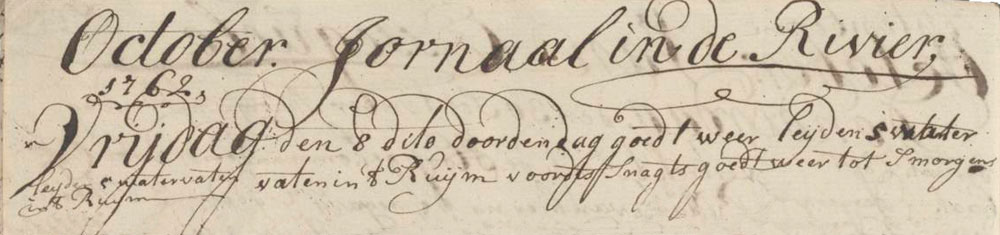 October. Jornaal in de Rivier,
1762,
Vrijdag den 8 dito door den dag goedt weer leyden 5 water
vaten in't Ruijm voorts Snagts goedt weer tot Smorgens
leyden 5 watervaten
in't Ruijm